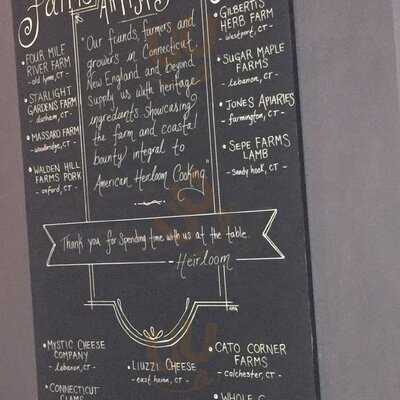 Farms
Artists
• FOUR MILE
RIVER FARM
- old lyme, CT -
• STARLIGHT
GARDENS FARM
- durham, CT -
• MASSARO FARM
- woodbridge, CT -
• WALDEN HILL
FARMS PORK
- oxford, CT -
"Our friends, farmers and
growers in Connecticut,
New England and beyond
supply us with heritage
ingredients showcasing
the farm and coastal
bounty integral to
American Heirloom Cooking."
• GILBERTIE'S
HERB FARM
- westport, CT -
• SUGAR MAPLE
FARMS
- lebanon, CT -
• JONES APIARIES
- farmington, CT -
• SEPE FARMS
LAMB
- sandy hook, CT -
Thank you for spending time with us at the table.
- Heirloom
• MYSTIC CHEESE
COMPANY
- lebanon, CT -
• CONNECTICUT
CLAMS
• LIUZZI CHEESE
- east haven, CT -
• CATO CORNER
FARMS
- colchester, CT -
• WHOLE G